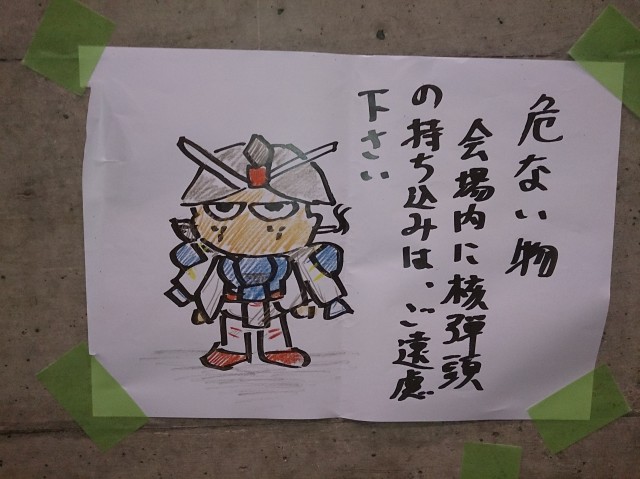 危ない物
会場内に核弾頭
の持ち込みは、ご遠慮
下さい